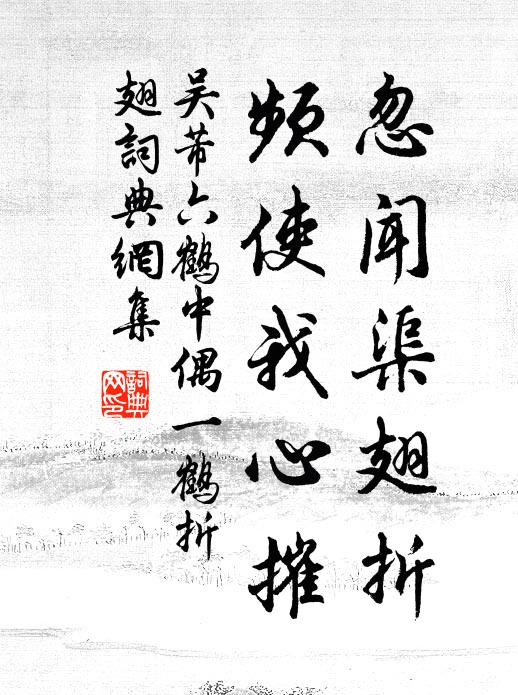 忽聞渠翅折
頻使我心摧
吴芾六鶴中偶一鶴折
翅詞典網集
詞典
网印